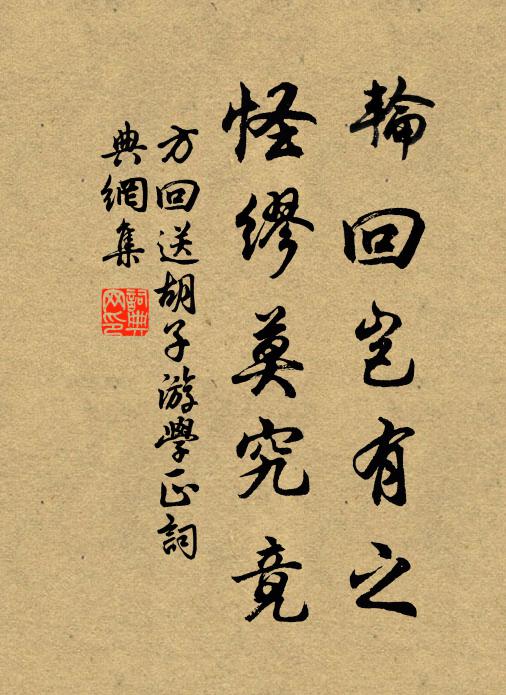 輪回豈有之
怪繆莫究竟
方回送胡子游學正詞
典網集
詞典
网印